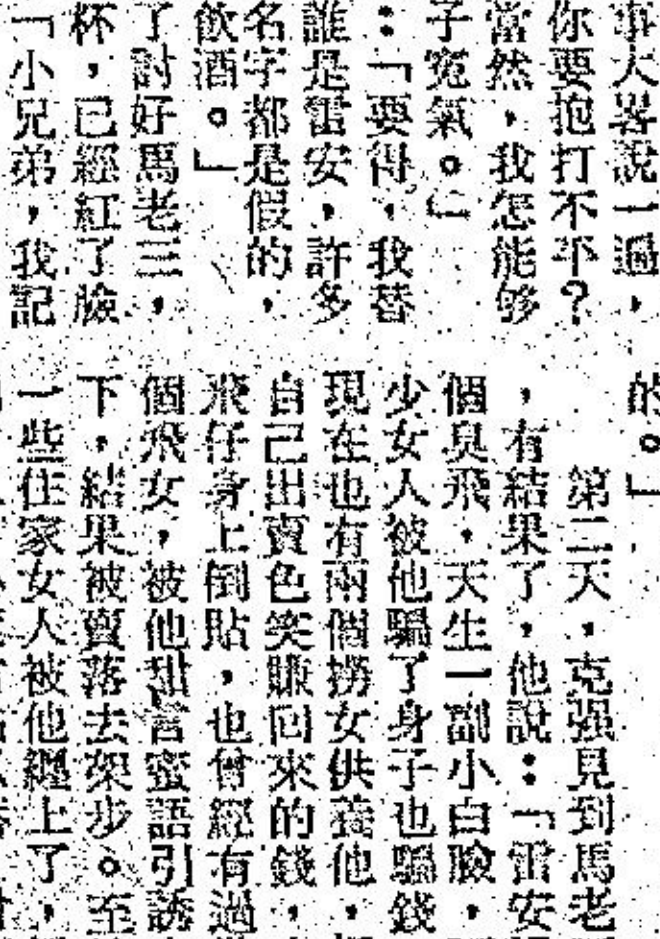 事大畧說一過，
你要抱打不平？
當然，我怎能够
子寃氣。」
：「要得，我替
誰是雷安，許多
名字都是假的，
飲酒。」
了討好馬老三，
杯，已經紅了臉
「小兄弟，我記
的。」
第二天，克强見到馬老
，有結果了，他說：「雷安
個臭飛，天生一副小白臉，
少女人被他騙了身子也騙錢
現在也有兩個撈女供養他，
自己出賣色笑賺回來的錢，
飛仔身上倒貼，也曾經有過
個飛女，被他甜言蜜語引誘
下，結果被賣落去架步。至
一些住家女人被他纏上了，